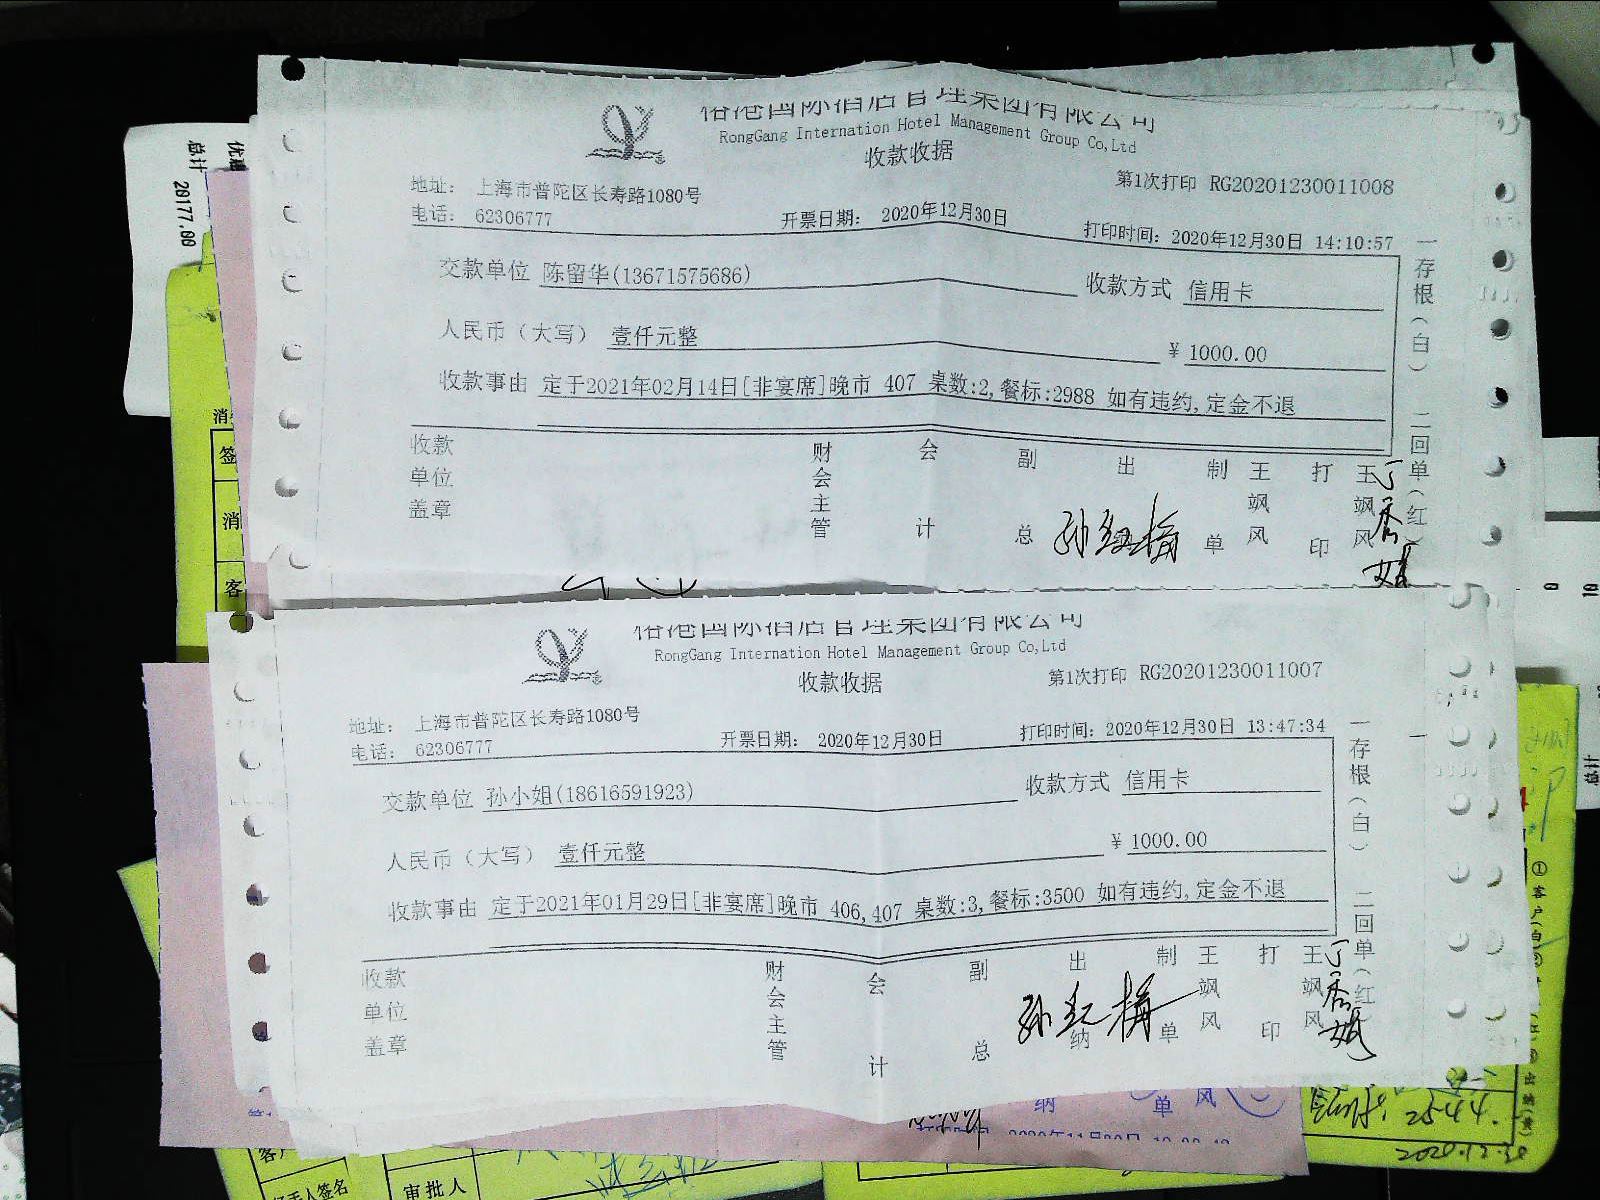 裕港国际酒店管理集团有限公司
RongGang Internation Hotel Management Group Co,Ltd
收款收据
第1次打印 RG20201230011008
地址： 上海市普陀区长寿路1080号
电话： 62306777
开票日期： 2020年12月30日
打印时间：2020年12月30日 14:10:57
交款单位 陈留华(13671575686)
收款方式 信用卡
人民币（大写） 壹仟元整
¥ 1000.00
收款事由 定于2021年02月14日[非宴席]晚市 407 桌数:2,餐标:2988 如有违约,定金不退
一存根（白） 二回单（红）
收款单位盖章
财会主管
会计
副总
出
孙红梅
制单 王飒风
打印 王飒风
裕港国际酒店管理集团有限公司
RongGang Internation Hotel Management Group Co,Ltd
收款收据
第1次打印 RG20201230011007
地址： 上海市普陀区长寿路1080号
电话： 62306777
开票日期： 2020年12月30日
打印时间：2020年12月30日 13:47:34
交款单位 孙小姐(18616591923)
收款方式 信用卡
人民币（大写） 壹仟元整
¥ 1000.00
收款事由 定于2021年01月29日[非宴席]晚市 406,407 桌数:3,餐标:3500 如有违约,定金不退
一存根（白） 二回单（红）
收款单位盖章
财会主管
会计
副总
出纳
孙红梅
制单 王飒风
打印 王飒风
总计
20177.00
签
消
客
纳
单 风
2544.
2020.12.30
审批人
总计